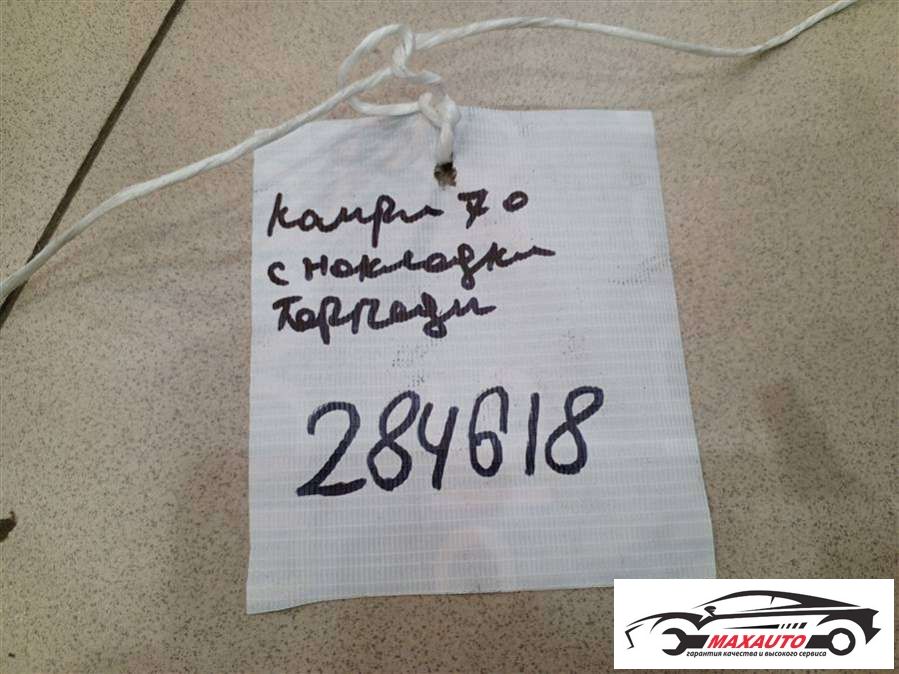 Камри 70
с нокладки
Торпеди
284618
MAXAUTO
гарантия качества и высокого сервиса